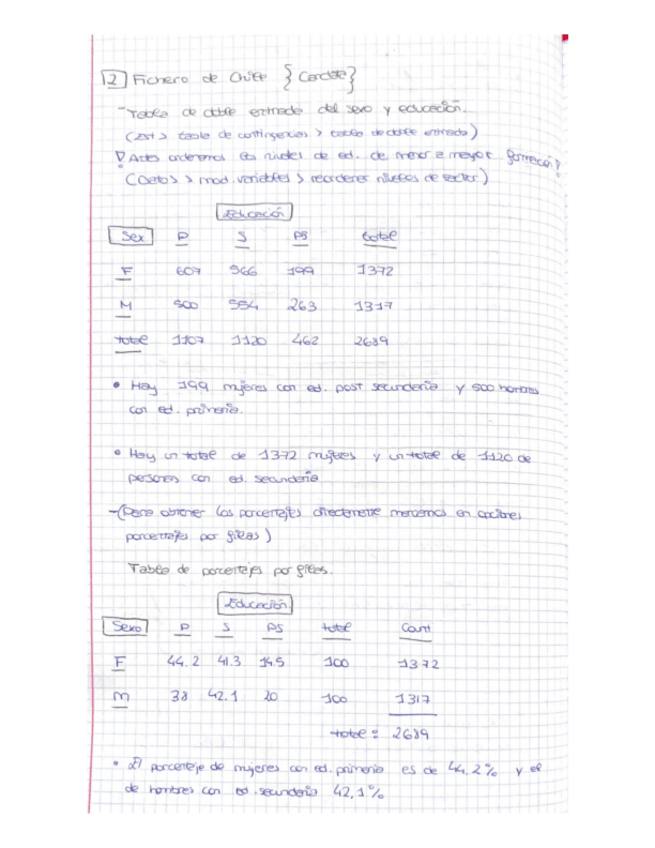 2 Fichero de Chile {Cardat}
- Tabla de doble entrada del sexo y educación.
(Est > tabla de contingencias > tabla de doble entrada)
¡Antes ordenamos los niveles de ed. de menor a mayor formación!
(Datos > mod. variables > reordenar niveles de factor)
Educación
Sex P S PS total
F 607 566 199 1372
M 500 554 263 1317
total 1107 1120 462 2689
• Hay 199 mujeres con ed. post secundaria y 500 hombres
con ed. primaria.
• Hay un total de 1372 mujeres y un total de 1120 de
personas con ed. secundaria
- (Para obtener los porcentajes directamente marcamos en opciones
porcentajes por filas)
Tabla de porcentajes por filas.
Educación
Sexo P S PS total Count
F 44.2 41.3 14.5 100 1372
M 38 42.1 20 100 1317
total = 2689
• El porcentaje de mujeres con ed. primaria es de 44,2% y el
de hombres con ed. secundaria 42,1%